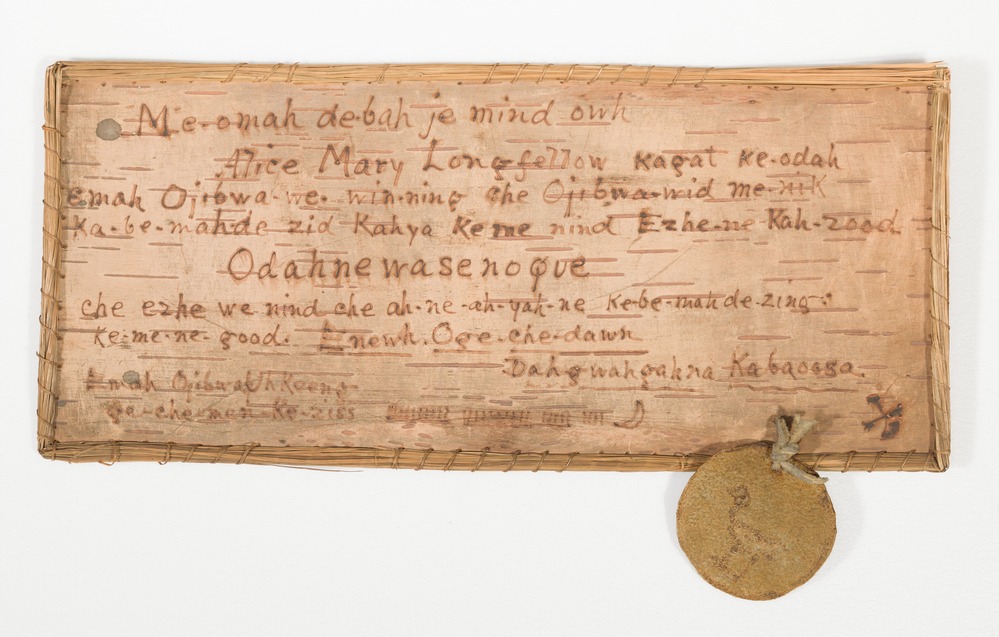 Me-omah de-bah je mind owh
Alice Mary Longfellow kagat ke-odah
emah Ojibwa-we-win-ning che Ojibwa-wid me-nik
Ka-be-mahde zid Kahya Keme nind Ezhe-ne Kah-zood
Odahnewasenoque
che ezhe we nind che ah-ne-ah-yah-ne ke-be-mah de-zing:
Ke-me-ne-good. Enewh. Oge-che-dawn
Dahgwahgahna Kabaosa.
Emah Ojibwa
Ke-ziss